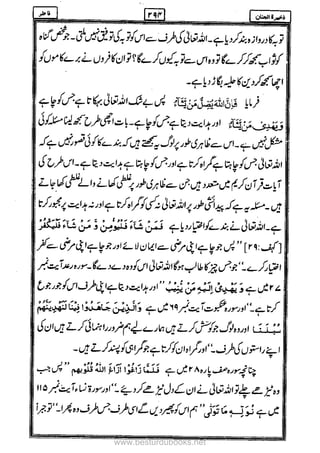 ذخیرة الجنان ۲۹۴ فاطر
توبہ کا دروازہ بند کر دیا ہے۔ اللہ تعالیٰ کی طرف سے اس کو توبہ کی توفیق نہیں ملتی۔ جو شخص گناہ
کو ثواب سمجھ کر کرے گا تو وہ اس سے توبہ کیوں کرے گا؟ تو ان کافروں نے برے کاموں کو
اچھا سمجھ کر دین کا حلیہ بگاڑ دیا ہے۔
فرمایا فَاِنَّ اللّٰهَ يُضِلُّ مَنْ يَّشَآءُ پس بے شک اللہ تعالیٰ بہکاتا ہے جس کو چاہے
وَيَهْدِىْ مَنْ يَّشَآءُ اور ہدایت دیتا ہے جس کو چاہے۔ بات اچھی طرح سمجھ لینا مسئلہ کوئی
مشکل نہیں ہے۔ اس سے ظاہری طور پر لوگ یہ سمجھتے ہیں کہ بندے کا کوئی قصور نہیں ہے کہ
اللہ تعالیٰ جس کو چاہتا ہے گمراہ کرتا ہے اور جس کو چاہتا ہے ہدایت دیتا ہے۔ اس طرح کی
آیات قرآن کریم میں متعدد ہیں جن سے ظاہری طور پر غلطی کھانے والے غلطی کھا جاتے
ہیں۔ مسئلہ یہ ہے کہ پیدائشی طور پر اللہ تعالیٰ نہ کسی کو گمراہ کرتا ہے اور نہ ہدایت پر مجبور کرتا
ہے۔ اللہ تعالیٰ نے بندے کو اختیار دیا ہے فَمَنْ شَآءَ فَلْيُؤْمِنْ وَّ مَنْ شَآءَ فَلْيَكْفُرْ
[کہف: ۲۹] "پس جو چاہے اپنی مرضی سے ایمان لائے اور جو چاہے اپنی مرضی سے کفر
اختیار کرے۔" جو جس چیز کا طالب ہوگا اللہ تعالیٰ اس کو وہ دے دے گا۔ سورہ رعد آیت نمبر
۲۷ میں ہے وَ يَهْدِىْٓ اِلَيْهِ مَنْ يُّنِيْبُ "اور ہدایت دیتا ہے اپنی طرف اس کو جو رجوع
کرتا ہے۔" اور سورہ عنکبوت آیت نمبر ۶۹ میں ہے وَ الَّذِيْنَ جَاهَدُوْا فِيْنَا لَنَهْدِيَنَّهُمْ
سُبُلَنَا "اور وہ لوگ جو کوشش کرتے ہیں ہمارے لیے ہم ضرور راہنمائی کرتے ہیں ان کی
اپنے راستوں کی طرف۔" اور گمراہ ان کو کرتا ہے جو گمراہی کو پسند کرتے ہیں۔
چنانچہ سورہ صف پارہ ۲۸ میں ہے فَلَمَّا زَاغُوْٓا اَزَاغَ اللّٰهُ قُلُوْبَهُمْ "پس جب
وہ ٹیڑھے چلے تو اللہ تعالیٰ نے ان کے دل ٹیڑھے کر دیئے۔" اور سورۃ نساء آیت نمبر ۱۱۵
میں ہے نُوَلِّهٖ مَا تَوَلّٰى "ہم اس کو پھیر دیں گے اسی طرف جس طرف وہ پھرا۔" تو جبراً
www.besturdubooks.net